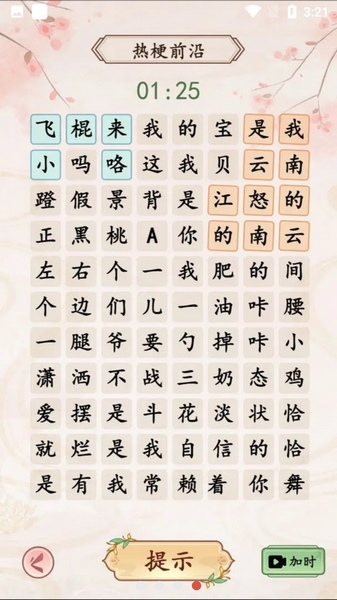 3:21
热梗前沿
01:25
飞棍来我的宝是我
小吗咯这我贝云南
蹬假景背是江怒的
正黑桃A你的南云
左右个一我肥的间
个边们儿一油咔腰
一腿爷要勺掉咔小
潇洒不战三奶态鸡
爱摆是斗花淡状恰
就烂是我自信的恰
是有我常赖着你舞
提示
加时